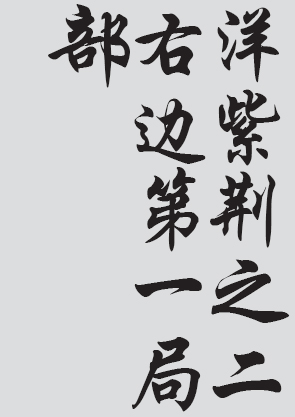 洋紫荆之二
右边第一局
部